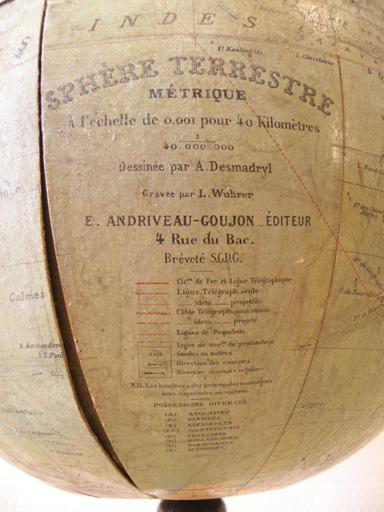 INDES
Iˢ Keeling (A)
I. Christmas
SPHÈRE TERRESTRE
MÉTRIQUE
à l'échelle de 0,001 pour 40 Kilomètres
1
40.000.000
Dessinée par A. Desmadryl
Gravée par L. Wuhrer
E. ANDRIVEAU-GOUJON ÉDITEUR
4 Rue du Bac.
Bréveté S.G.D.G.
Chᵐ de Fer et Ligne Télégraphique
Ligne Télégraph. seule
idem projetées
Câble Télégraph. sous marin
idem projeté
Lignes de Paquebots
Ligne de profondeur
Sondes en mètres
Direction des courants
Direction des vents réguliers
Calmes
I. Amsterdam
I. St Paul
N.B. Les hauteurs des principales montagnes
sont exprimées en mètres
POSSESSIONS DIVERSES
(A) ANGLAISES
(D) DANOISES
(E) ESPAGNOLES
(F) FRANÇAISES
(H) HOLLANDAISES
(P) PORTUGAISES